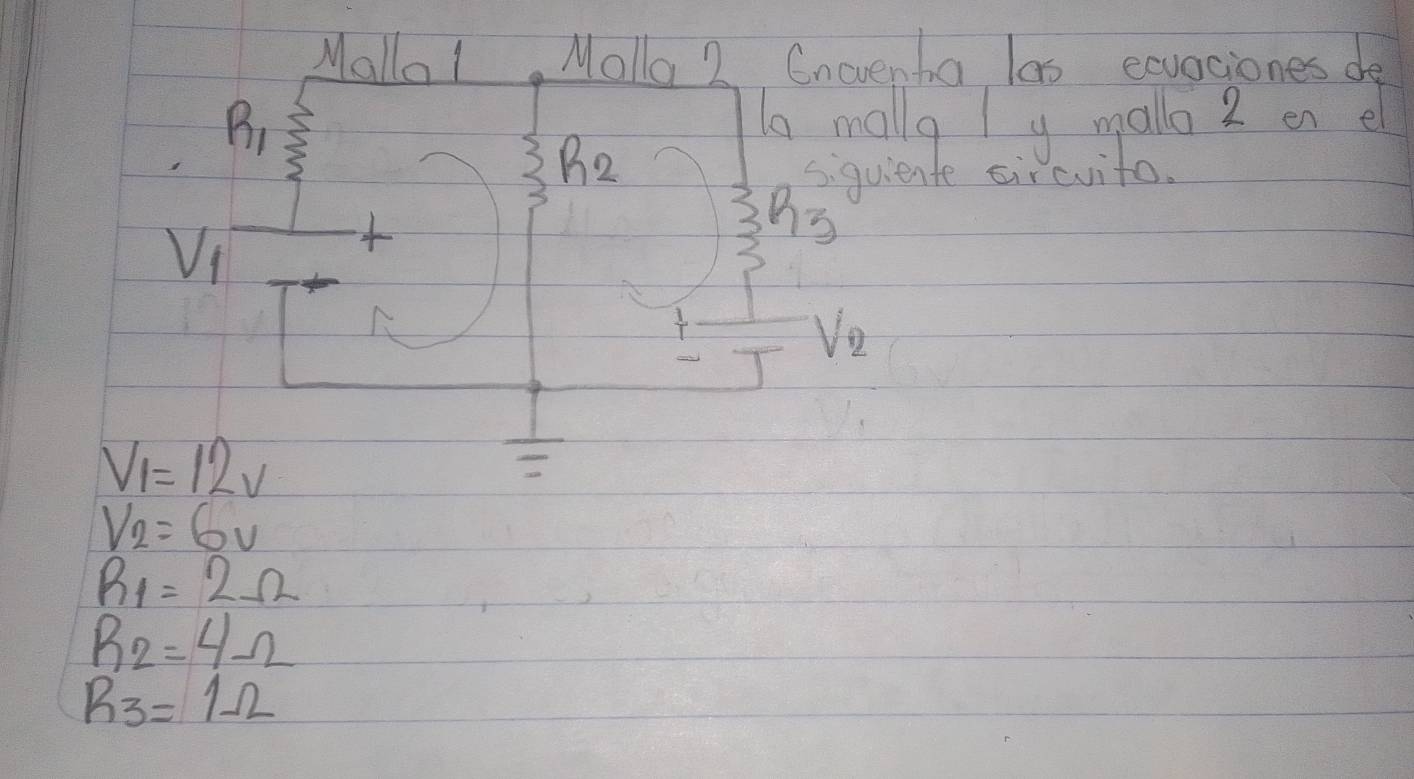 Malla 1 Malla 2 Encuentra las ecuaciones de
la malla 1 y malla 2 en el
siguiente circuito.
R1
R2
R3
V1
+
-
+
-
V2
V1=12v
V2=6v
R1=2Ω
R2=4Ω
R3=1Ω